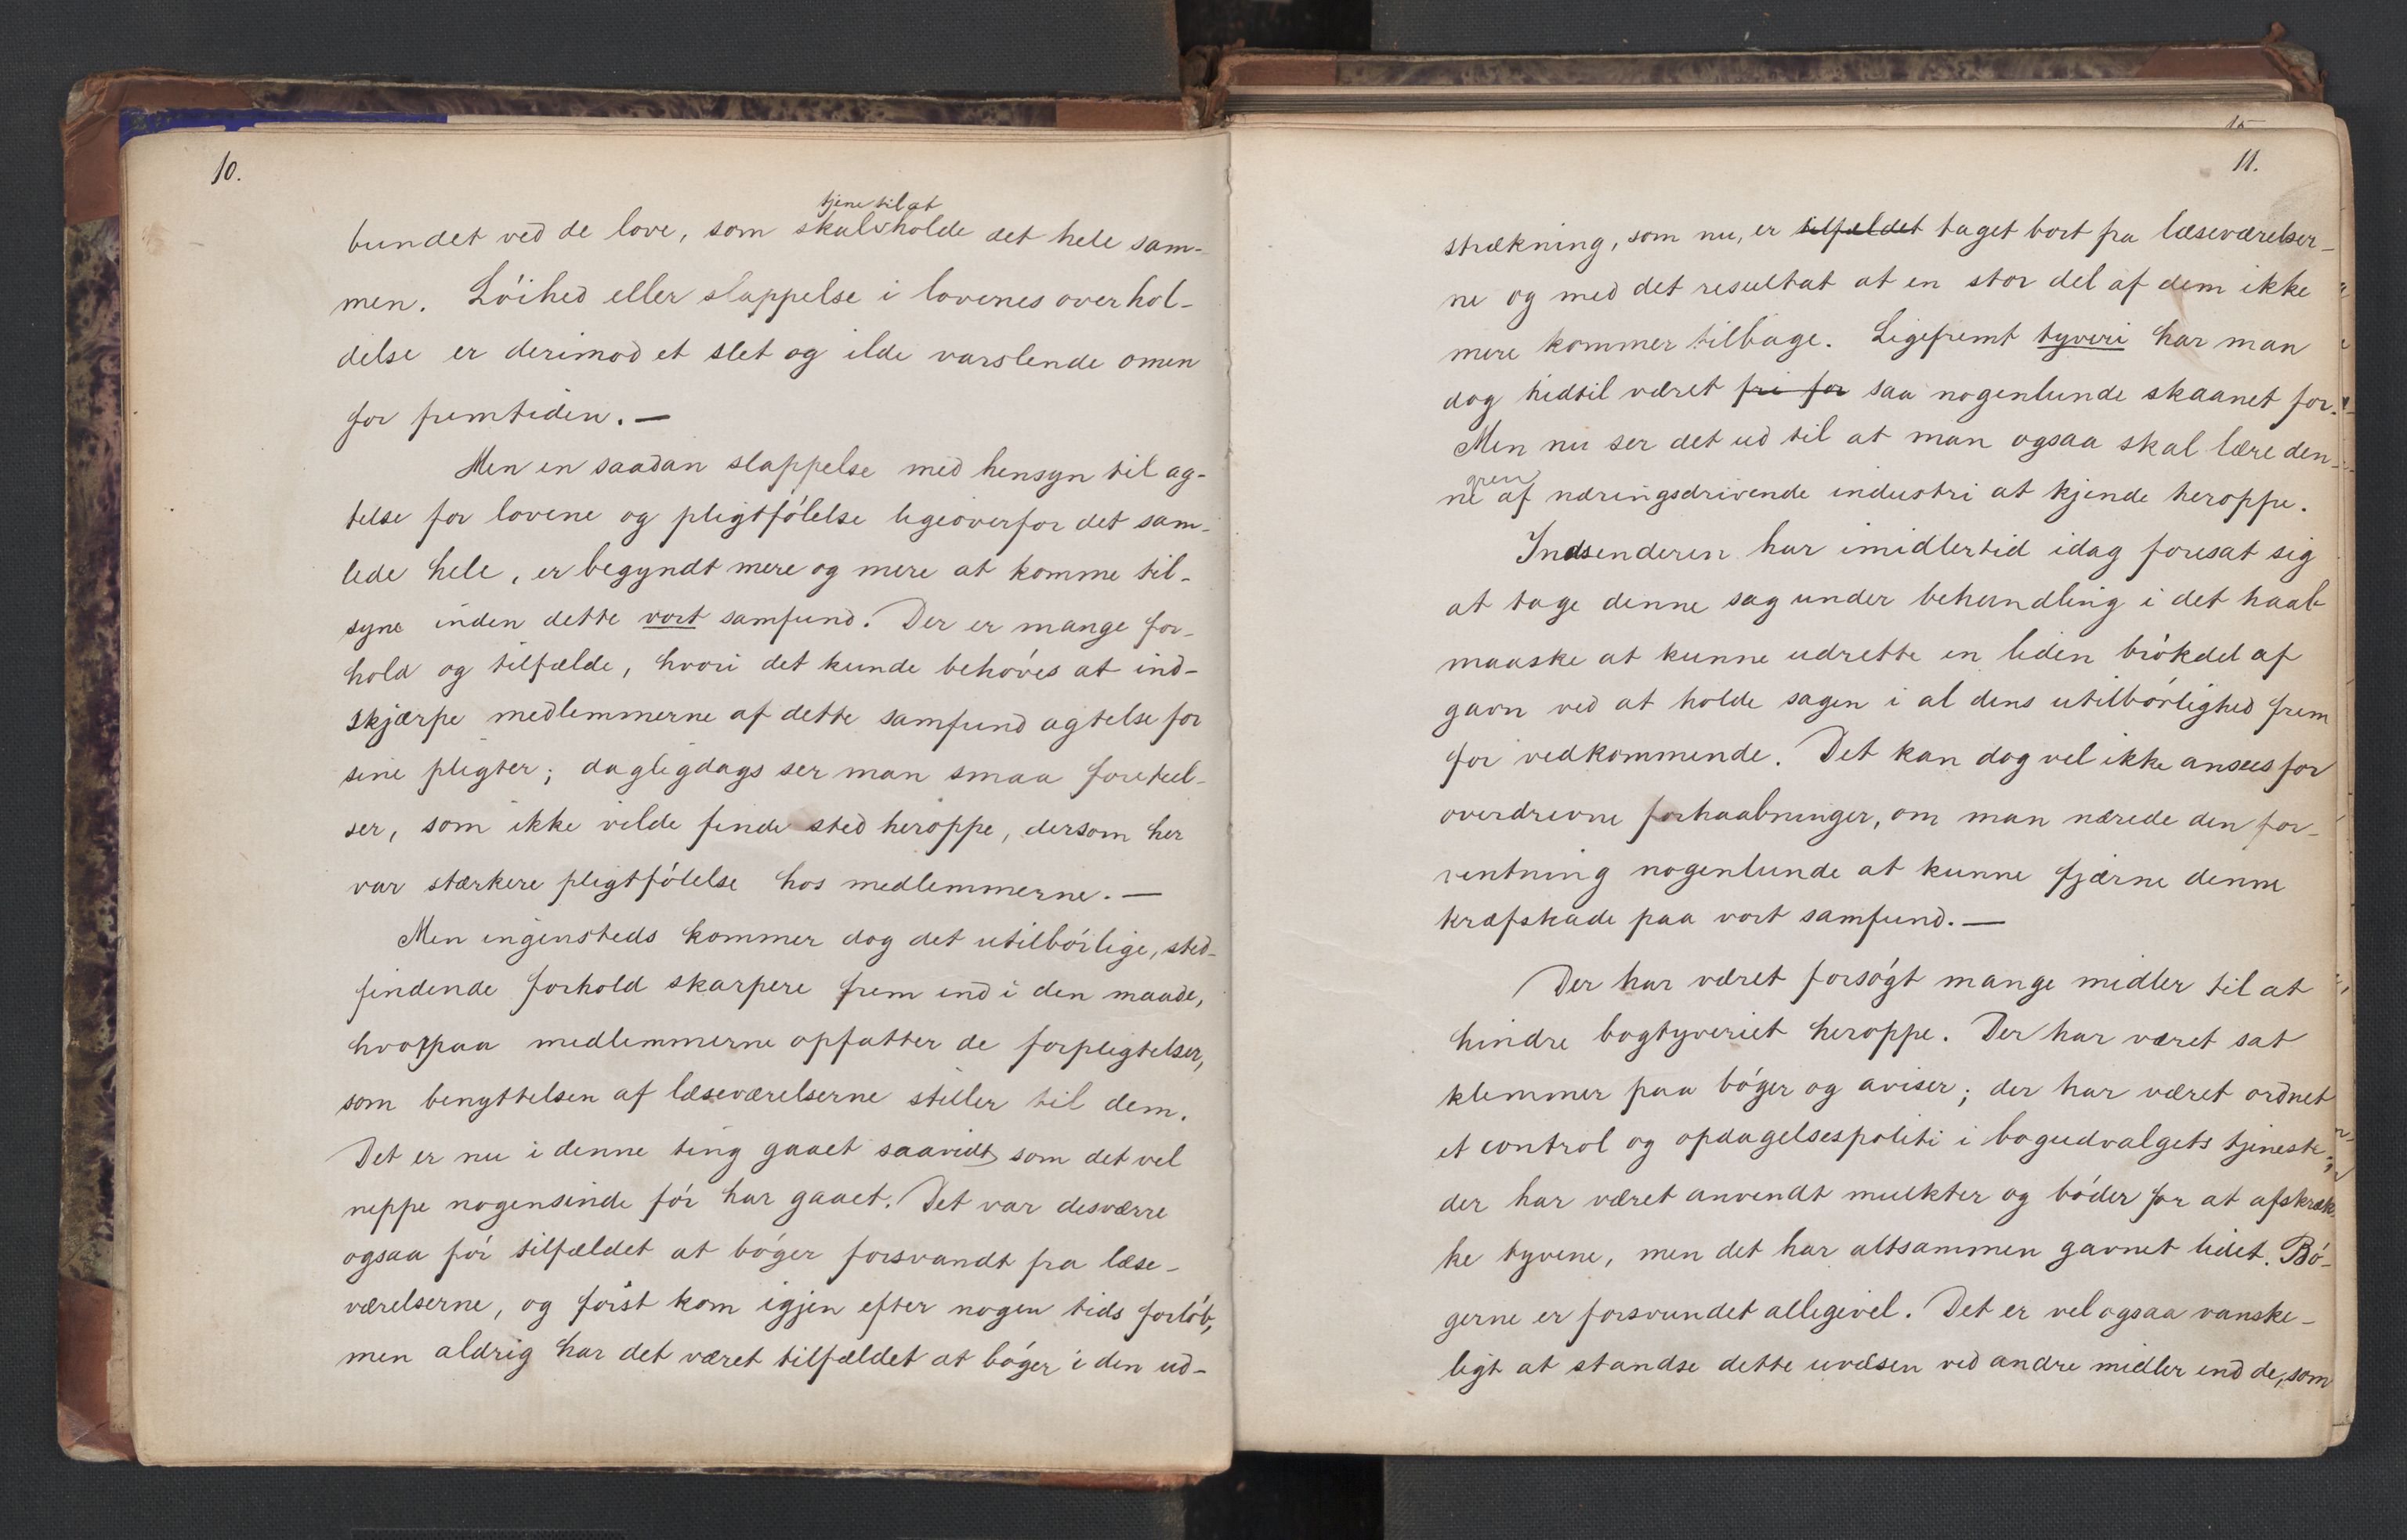 10.
bundet ved de love, som skal tjene til at holde det hele sam-
men. Löihed eller slappelse i lovenes overhol-
delse er derimod et slet og ilde varslende omen
for fremtiden. —
Men en saadan slappelse med hensyn til ag-
telse for lovene og pligtfölelse ligeoverfor det sam-
lede hele, er begyndt mere og mere at komme til-
syne inden dette vort samfund. Der er mange for-
hold og tilfælde, hvori det kunde behöves at ind-
skjærpe medlemmerne af dette samfund agtelse for
sine pligter; dagligdags ser man smaa foreteel-
ser, som ikke vilde finde sted heroppe, dersom her
var stærkere pligtfölelse hos medlemmerne. —
Men ingensteds kommer dog det utilbörlige, sted-
findende forhold skarpere frem end i den maade,
hvorpaa medlemmerne opfatter de forpligtelser,
som benyttelsen af læseværelserne stiller til dem.
Det er nu i denne ting gaaet saavidt, som det vel
neppe nogensinde för har gaaet. Det var desværre
ogsaa för tilfældet at böger forsvandt fra læse-
værelserne, og först kom igjen efter nogen tids forlöb,
men aldrig har det været tilfældet at böger i den ud-
11.
strækning, som nu, er tilfældet taget bort fra læseværelser-
ne og med det resultat at en stor del af dem ikke
mere kommer tilbage. Ligefremt tyveri har man
dog hidtil været fri for saa nogenlunde skaanet for.
Men nu ser det ud til at man ogsaa skal lære den-
ne gren af næringsdrivende industri at kjende heroppe.
Indsenderen har imidlertid idag foresat sig
at tage denne sag under behandling i det haab
maaske at kunne udrette en liden brökdel af
gavn ved at holde sagen i al dens utilbörlighed frem
for vedkommende. Det kan dog vel ikke ansees for
overdrevne forhaabninger, om man nærede den for-
ventning nogenlunde at kunne fjærne denne
kræfskade paa vort samfund. —
Der har været forsögt mange midler til at
hindre bogtyveriet heroppe. Der har været sat
klemmer paa böger og aviser; der har været ordnet
et control og opdagelsespoliti i bogudvalgets tjeneste;
der har været anvendt mulkter og böder for at afskræk-
ke tyvene, men det har altsammen gavnet lidet. Bö-
gerne er forsvundet alligevel. Det er vel ogsaa vanske-
ligt at standse dette uvæsen ved andre midler end de, som
15